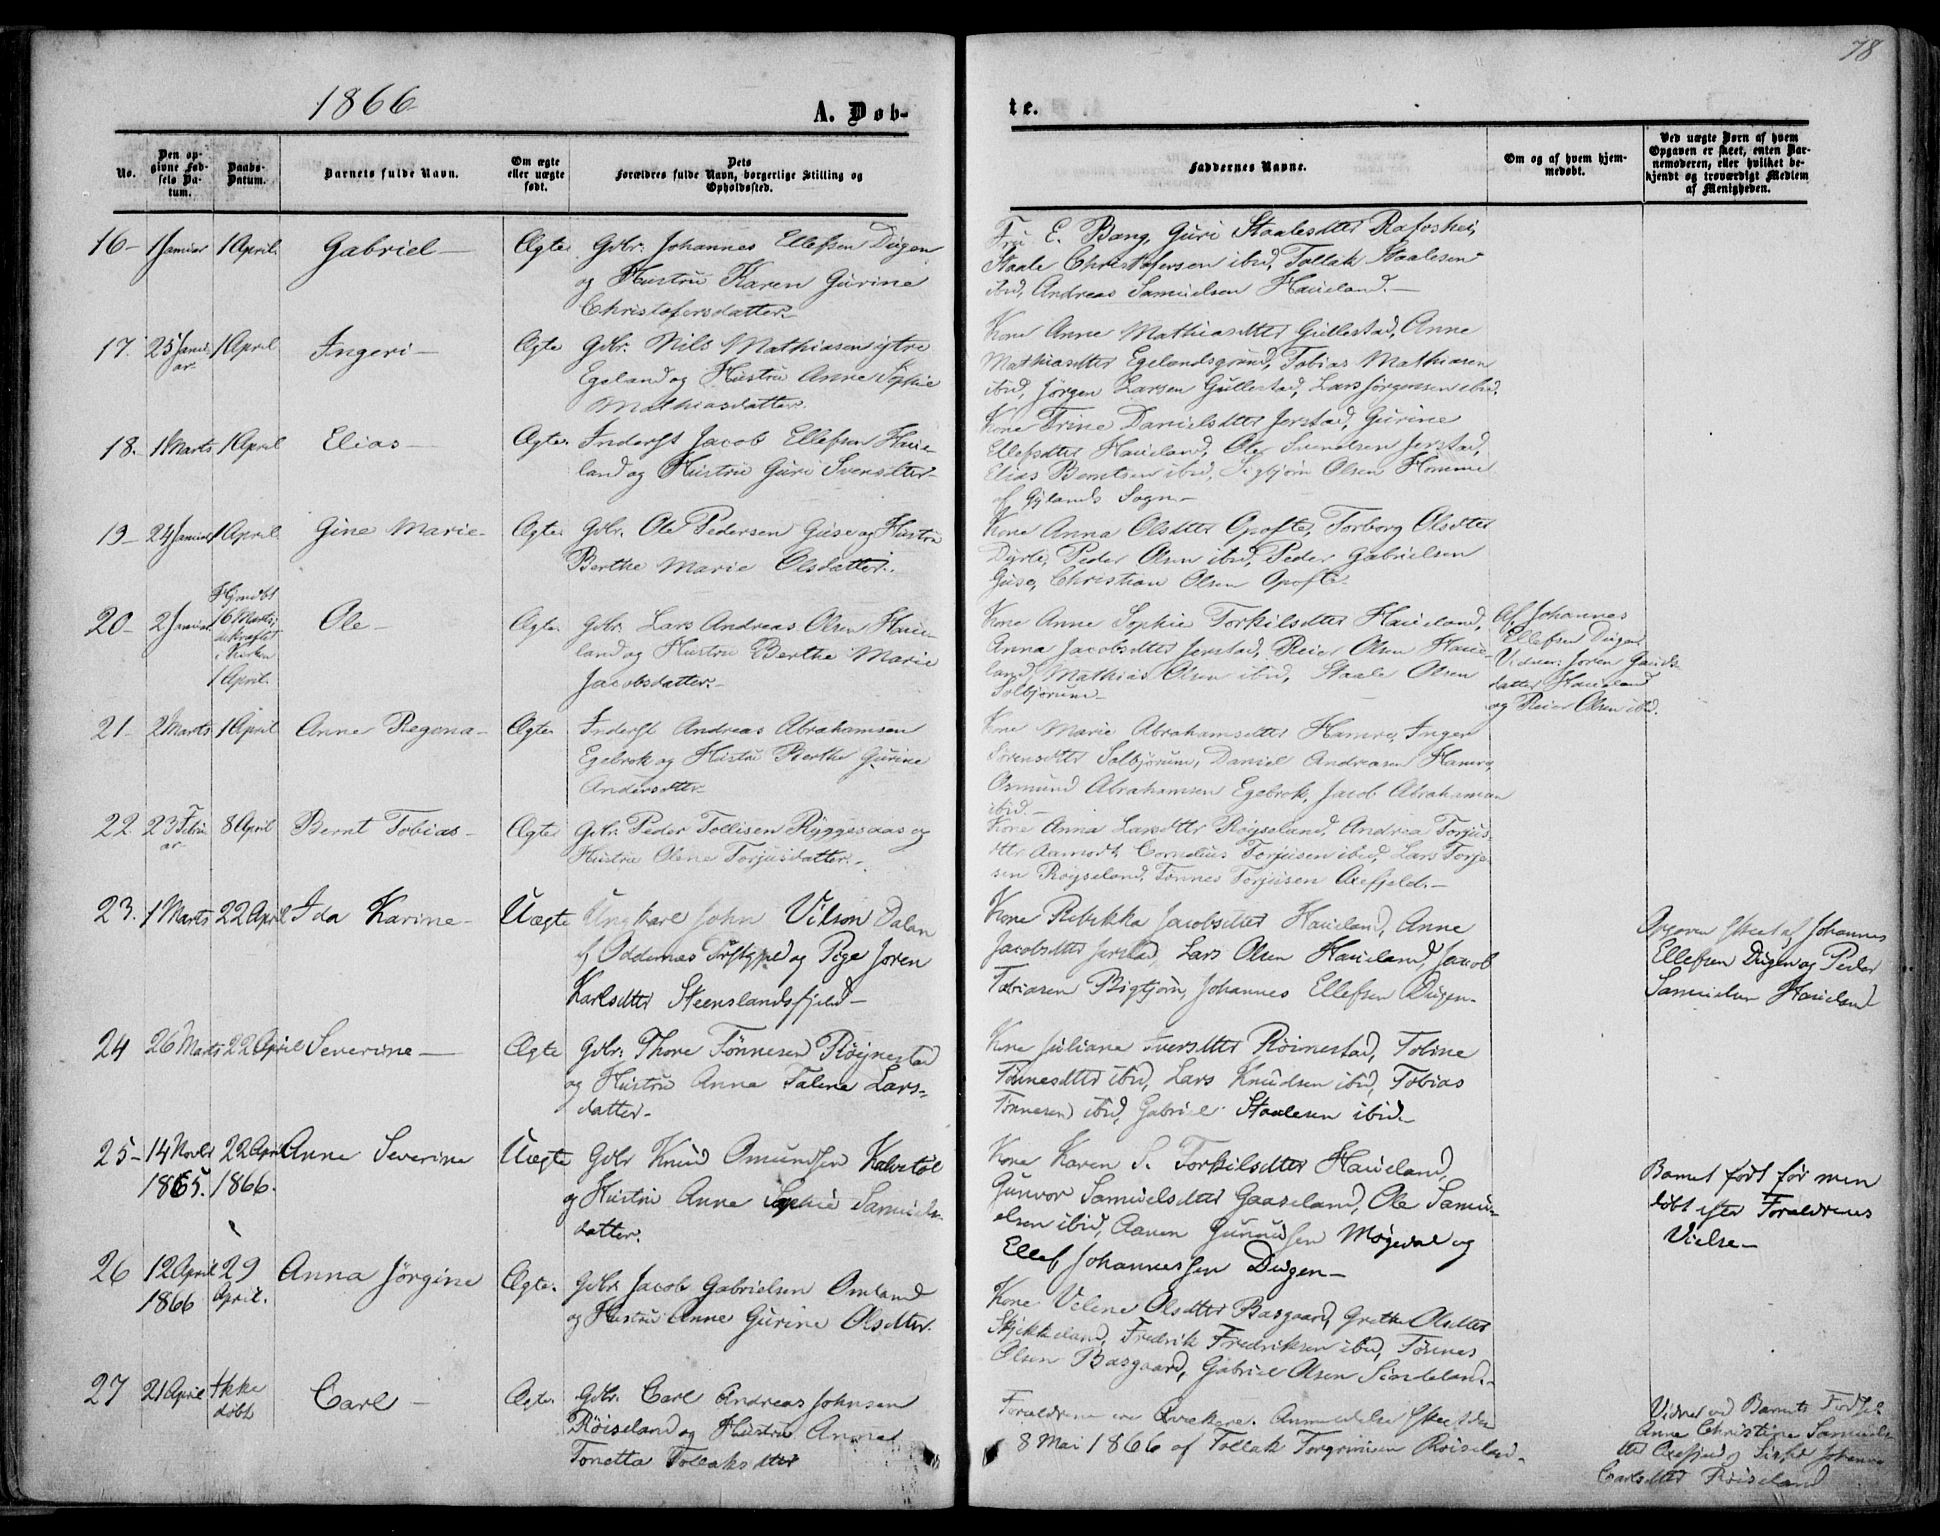 78
1866
A. Døb-
te.
No.
Den op-
givne Fød-
sels Da-
tum.
Daabs-
Datum.
Barnets fulde Navn.
Om ægte
eller uægte
født.
Dets
Forældres fulde Navn, borgerlige Stilling og
Opholdssted.
Faddernes Navne.
Om og af hvem hjem-
medøbt.
Ved uægte Børn af hvem
Opgaven er skeet, enten Bar-
nemoderen, eller hvilket be-
kjendt og troværdigt Medlem
af Menigheden.
16- 1 Januar 1 April. Gabriel- Ægte. Gdbr. Johannes Ellefsen Dugen
og Hustru Karen Gurine
Christofersdatter.-
Fru E. Bang, Guri Staalesdtter Rafoshei,
Staale Christofersen ibid, Tollak Staalesen
ibid, Andreas Samuelsen Haueland.-
17. 25 Janu- 1 April Ingeri- Ægte Gdbr. Nils Mathiasen ytre
ar Egeland og Hustru Anne Sophie
Mathiasdatter.
Kone Anne Mathiasdtter Gullestad, Anne
Mathiasdtter Egelandsgrund, Tobias Mathiasen
ibid, Jørgen Larsen Gullestad, Lars Jørgensen ibid.
18. 1 Marts 1 April Elias- Ægte. Inderst Jacob Ellefsen Haue-
land og Hustru Guri Svensdtter-
Kone Trine Danielsdtter Jerstad, Gurine
Ellefsdtter Haueland, Ole Svendsen Jerstad,
Elias Berntsen ibid, Sigbjørn Olsen Homme
af Gylands Sogn.-
19- 24 Januar 1 April Gine Marie- Ægte. Gdbr. Ole Pedersen Guse og Hustru
Berthe Marie Olsdatter.
Kone Anna Olsdtter Opofte, Torborg Olsdtter
Dyrli, Peder Olsen ibid, Peder Gabrielsen
Guse, Christian Olsen Opofte
20- 2 Januar Hjmdbt
16 Marts,
bekræftet
i Kirken
1 April. Ole- Ægte. Gdbr. Lars Andreas Olsen Haue-
land og Hustru Berthe Marie
Jacobsdatter.-
Kone Anne Sophie Torkilsdtter Haueland,
Anna Jacobsdtter Jerstad, Reier Olsen Haue-
land, Mathias Olsen ibid, Staale Olsen
Solbjørum-
Af Johannes
Ellefsen Dugen
Vidner: Joren Gauds-
datter Haueland
og Reier Olsen ibid.
21- 2 Marts 1 April Anne Regona- Ægte Inderst Andreas Abrahamsen
Egebrok og Hustru Berthe Gurine
Andersdtter
Kone Marie Abrahamsdtter Hamre, Inger
Sørensdtter Solbjørum, Daniel Andreasen Hamre,
Osmund Abrahamsen Egebrok, Jacob Abrahamsen
ibid.-
22 23 Febru- 8 April Bernt Tobias- Ægte Gdbr. Peder Tollisen Ryggesaas og
ar Hustru Olene Torjusdatter.-
Kone Anna Larsdttr Røyseland, Andrea Torjus-
dttr Aamodt, Cornelius Torjusen ibid, Lars Torje-
sen Røyseland, Tønnes Torjusen Axefjeld.-
23. 1 Marts 22 April Ida Karine- Uægte Ungkarl John Vilson Dalan
af Oddernes Præstgjeld og Pige Joren
Karlsdtter Steenslandsfjeld-
Kone Rebekka Jacobsdtter Haueland, Anne
Jacobsdtter Jerstad, Lars Olsen Haueland, Jacob
Tobiasen Bigtjørn, Johannes Ellefsen Dugen-
Opgaven skeet af Johannes
Ellefsen Dugen og Peder
Samuelsen Haueland
24 26 Marts 22 April Severine- Ægte Gdbr: Thore Tønnesen Røynestad
og Hustru Anne Talene Lars-
datter-
Kone Juliane Iversdtter Røinestad, Tobine
Tønnesdtter ibid, Lars Knudsen ibid, Tobias
Tønnesen ibid, Gabriel Staalesen ibid-
25- 14 Novbr 22 April Anne Severine Uægte Gdbr Knud Omundsen Kalvstøl
1865. 1866. og Hustru Anne Sophie Samuels-
datter.
Kone Karen S. Torkilsdtter Haueland,
Gunvor Samuelsdtter Gaaseland, Ole Samu-
elsen ibid, Aanen Gunuldsen Møgedal og
Ellef Johannessen Dugen-
Barnet født før men
døbt efter Forældrenes
Vielse-
26 12 April 29 Anna Jørgine Ægte. Gdbr. Jacob Gabrielsen Omland
1866 April. og Hustru Anne Gurine Olsdtter.
Kone Velene Olsdtter Basgaard, Grethe Olsdtter
Skjekkeland, Fredrik Fredriksen ibid, Tønnes
Olsen Basgaard, Gabriel Olsen Sindeland.-
27 21 April Ikke
døbt Carl- Ægte. Gdbr. Carl Andreas Johnsen
Røiseland og Hustru Anne
Tonetta Tollaksdtter
Forældrene ere Kvækere. Anmeldelse skeet den
8 Mai 1866 af Tollak Torgrimsen Røiseland-
Vidner ved Barnets Fødsel
Anne Christine Samuels-
dtter Axefjeld og Johanne
Carlsdtter Røiseland